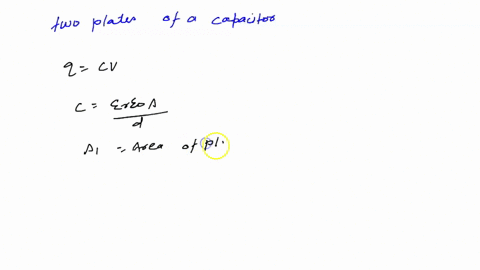 two plates of a capacitor
q = CV
C = εrε0 A / d
A1 → Area of pl.